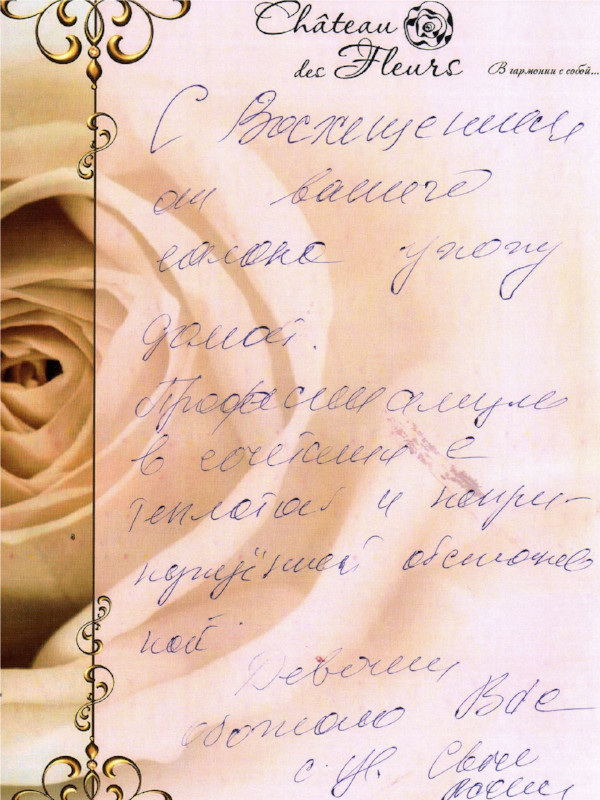 Château
des Fleurs
В гармонии с собой...
С Восхищением
от вашего
салона ухожу
домой.
Професионализм
в сочетании с
теплотой и непри-
нуждённой обстанов
кой.
Девочки
обожаю Вас
с Ув.